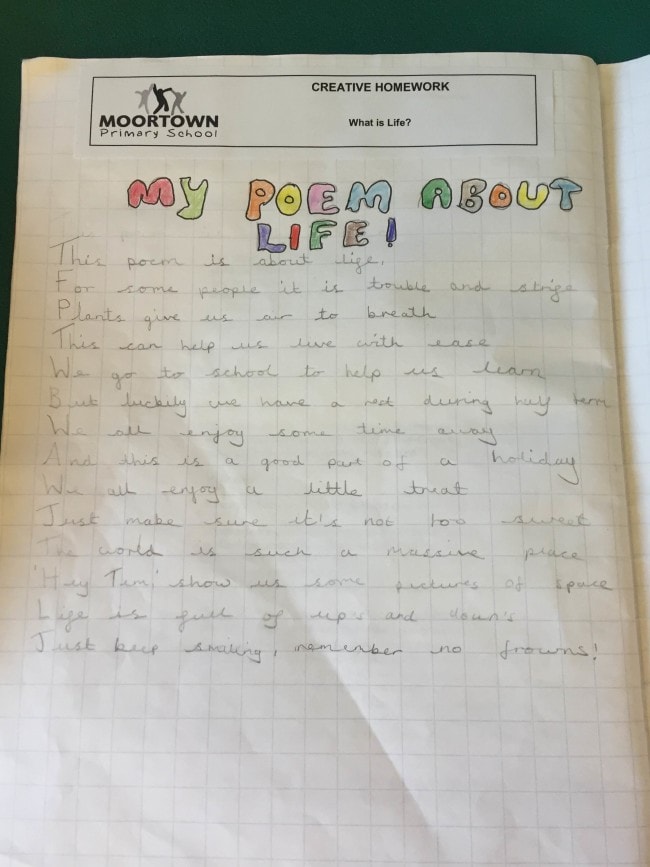 CREATIVE HOMEWORK
MOORTOWN
Primary School
What is Life?
MY POEM ABOUT
LIFE!
This poem is about life,
For some people it is trouble and strife
Plants give us air to breath
This can help us live with ease
We go to school to help us learn
But luckily we have a rest during half term
We all enjoy some time away
And this is a good part of a holiday
We all enjoy a little treat
Just make sure it's not too sweet
The world is such a massive place
'Hey Tim,' show us some pictures of space
Life is full of up's and down's
Just keep smiling, remember no frowns!